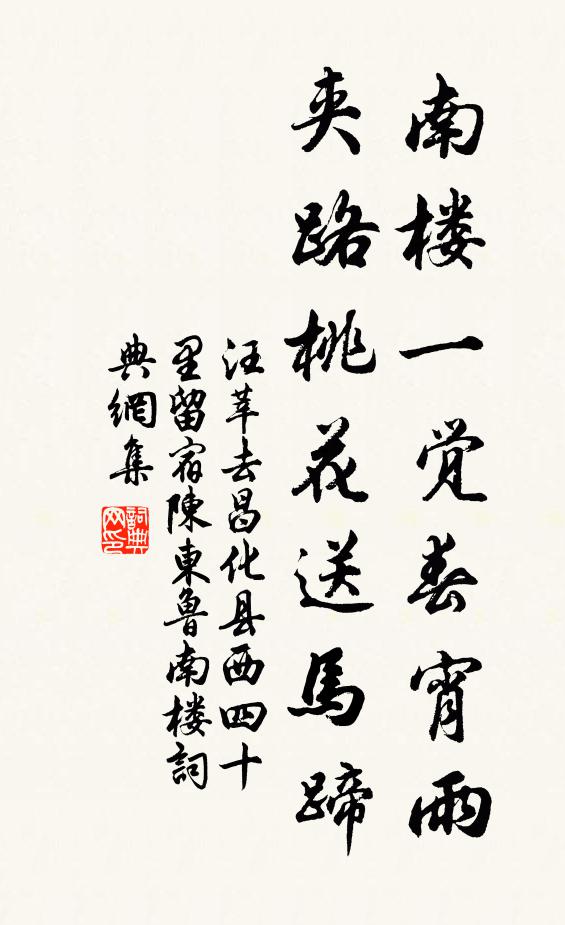 南楼一觉春宵雨
夹路桃花送馬蹄
汪莘去昌化县西四十
里留宿陳東魯南楼詞
典網集
詞典网印